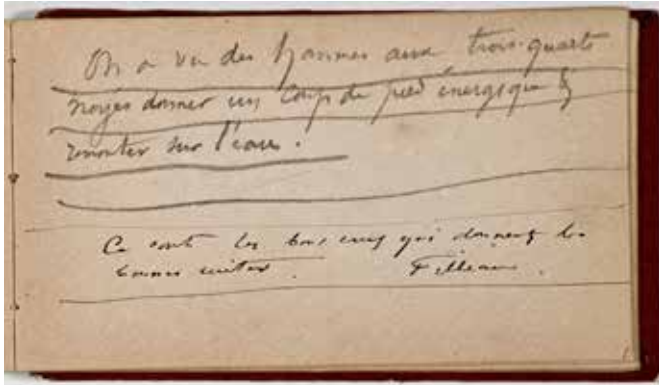 On a vu des hommes aux trois-quarts
noyés donner un coup de pied énergique &
remonter sur l'eau.
Ce sont les bons crus qui donnent les
bonnes cuites.